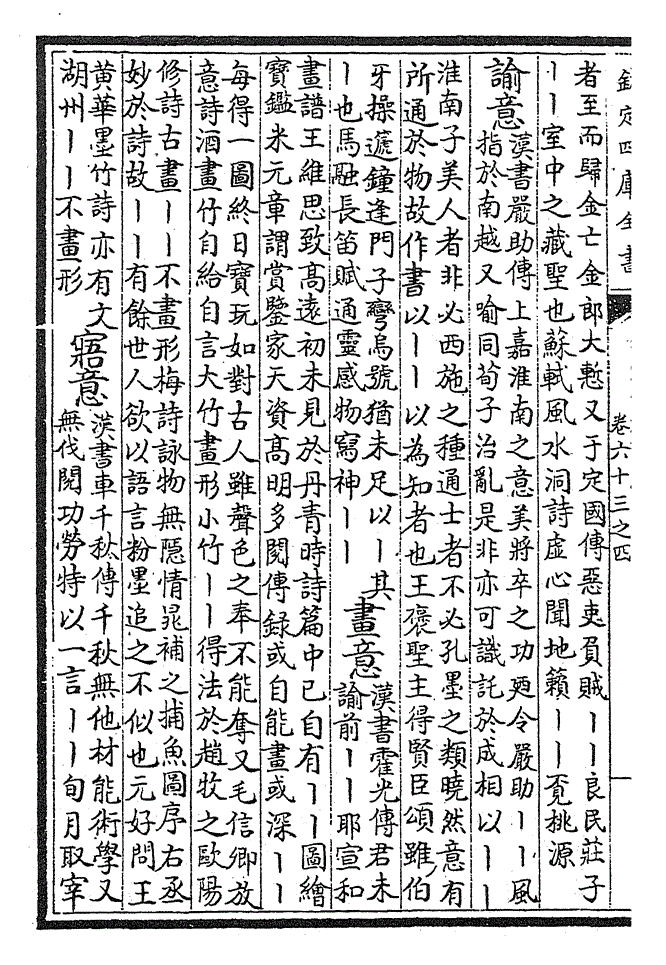 欽定四庫全書
卷六十三之四
者至而歸金亡金郎大慙又于定國傳惡吏負賊丨丨良民莊子
丨丨室中之藏聖也蘇軾風水洞詩虛心聞地籟丨丨覓桃源
諭意漢書嚴助傳上嘉淮南之意美將卒之功廼令嚴助丨丨風
指於南越又喻同荀子治亂是非亦可識託於成相以丨丨
淮南子美人者非必西施之種通士者不必孔墨之類曉然意有
所通於物故作書以丨丨以為知者也王褒聖主得賢臣頌雖伯
牙操遞鐘逢門子彎烏號猶未足以丨其
丨也馬融長笛賦通靈感物寫神丨丨
畫意漢書霍光傳君未
諭前丨丨丨耶宣和
畫譜王維思致髙遠初未見於丹青時詩篇中已自有丨丨圖繪
寶鑑米元章謂賞鑒家天資髙明多閱傳録或自能畫或深丨丨
每得一圖終日寶玩如對古人雖聲色之奉不能奪又毛信卿放
意詩酒畫竹自給自言大竹畫形小竹丨丨得法於趙牧之歐陽
修詩古畫丨丨不畫形梅詩詠物無隱情晁補之捕魚圖序右丞
妙於詩故丨丨有餘世人欲以語言粉墨追之不似也元好問王
黃華墨竹詩亦有文
湖州丨丨不畫形
寤意漢書車千秋傳千秋無他材能術學又
無伐閱功勞特以一言丨丨旬月取宰